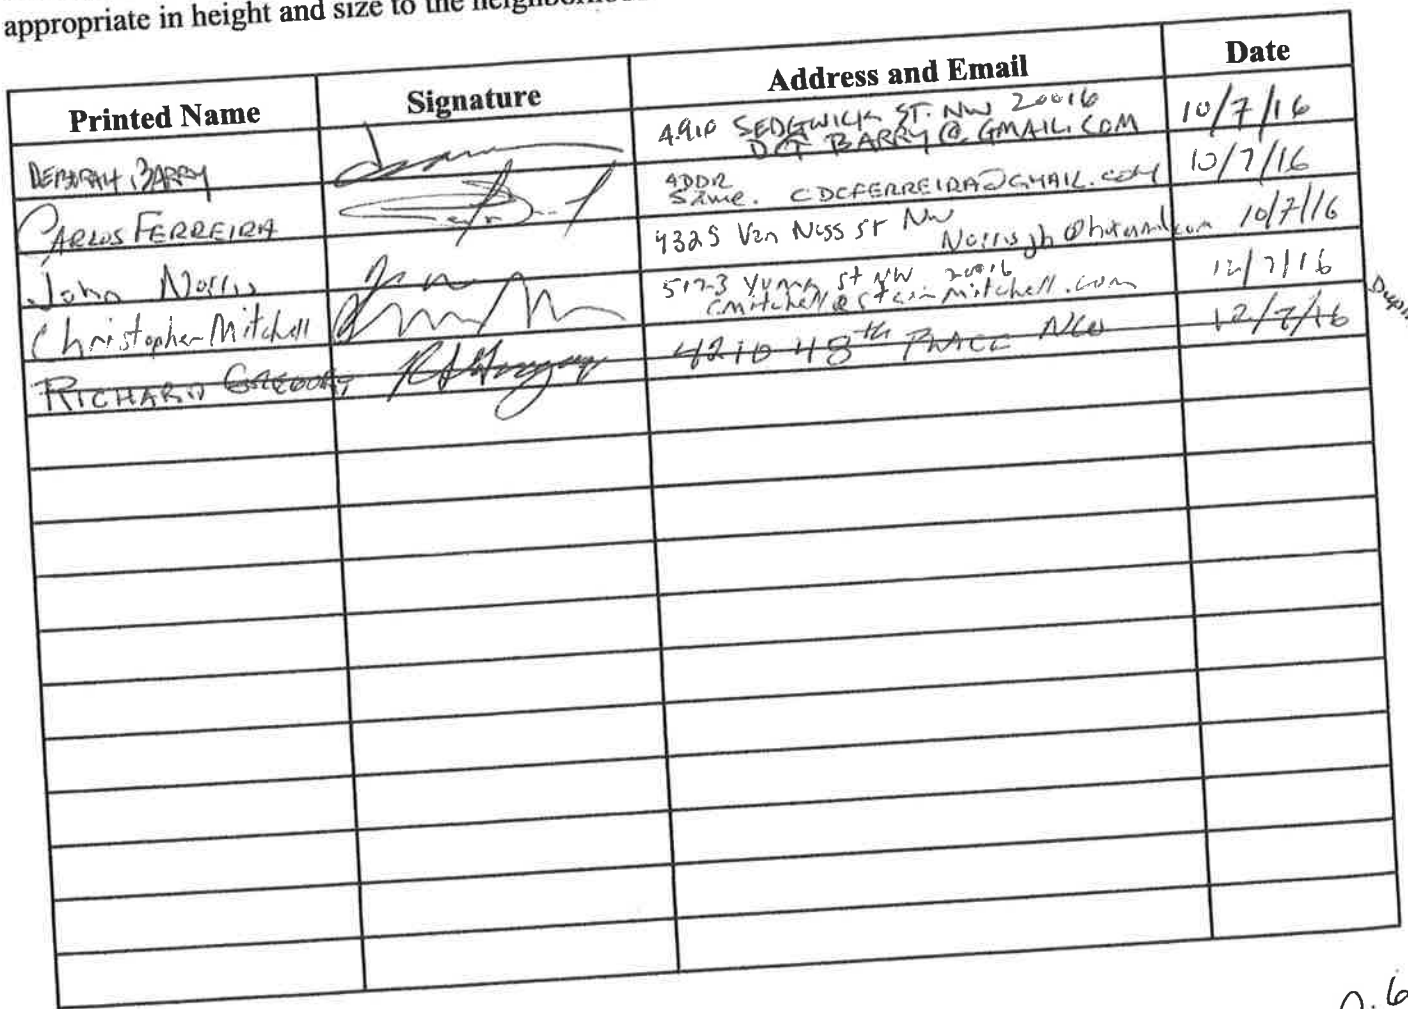 appropriate in height and size to the
Printed Name Signature Address and Email Date
DEBORAH BARRY 4910 SEDGWICK ST. NW 20016 10/7/16
BARRY@GMAIL.COM
CARLOS FERREIRA ADDR Same. CDCFERREIRA@GMAIL.COM 10/7/16
John Norris 4325 Van Ness St NW 10/7/16
Norrisjh@hotmail.com
Christopher Mitchell 5123 Yuma St NW 20016 12/7/16
cmitchell@steinmitchell.com
RICHARD GREGORY 4210 48th PLACE NW 12/7/16
p.6